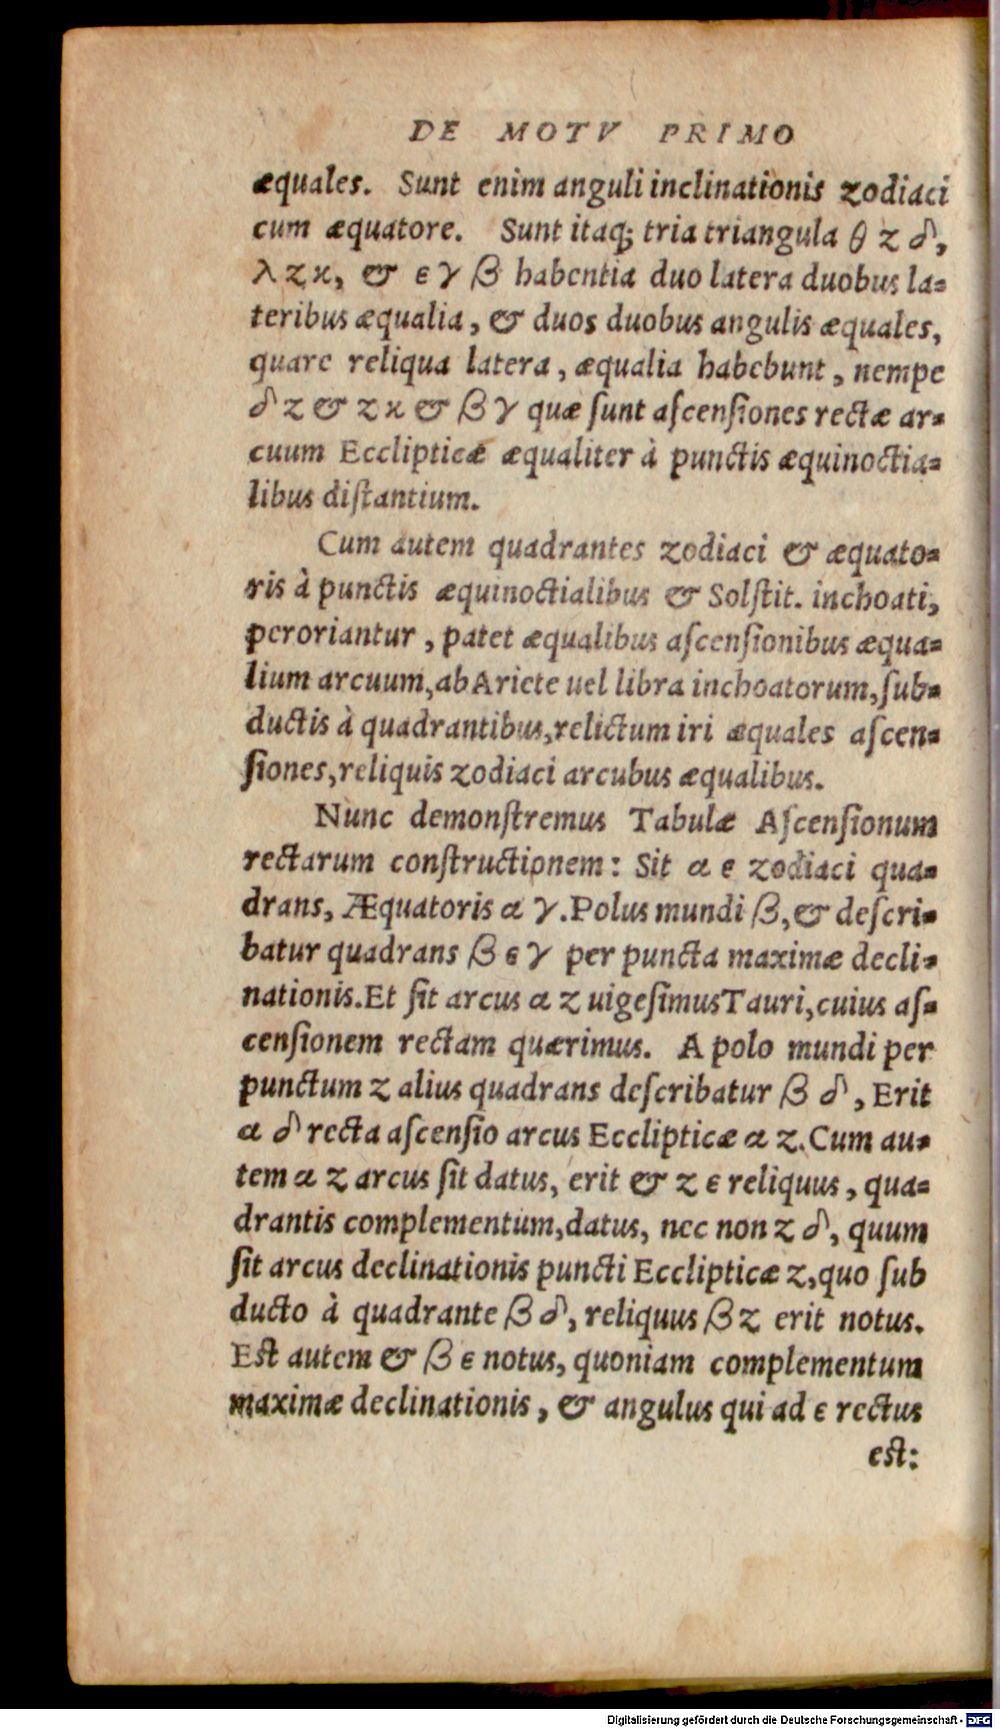 DE MOTV PRIMO
æquales. Sunt enim anguli inclinationis zodiaci
cum æquatore. Sunt itaq; tria triangula θ z δ,
λ z κ, & ε γ β habentia duo latera duobus la=
teribus æqualia, & duos duobus angulis æquales,
quare reliqua latera, æqualia habebunt, nempe
δ z & z κ & β γ quæ ſunt aſcenſiones rectæ ar=
cuum Ecclipticæ æqualiter à punctis æquinoctia=
libus diſtantium.
Cum autem quadrantes zodiaci & æquato=
ris à punctis æquinoctialibus & Solſtit. inchoati,
peroriantur, patet æqualibus aſcenſionibus æqua=
lium arcuum, ab Ariete uel libra inchoatorum, ſub=
ductis à quadrantibus, relictum iri æquales aſcen=
ſiones, reliquis zodiaci arcubus æqualibus.
Nunc demonſtremus Tabulæ Aſcenſionum
rectarum conſtructionem: Sit α ε zodiaci qua=
drans, Æquatoris α γ. Polus mundi β, & deſcri=
batur quadrans β ε γ per puncta maximæ decli=
nationis. Et ſit arcus α z uigeſimus Tauri, cuius aſ=
cenſionem rectam quærimus. A polo mundi per
punctum z alius quadrans deſcribatur β δ, Erit
α δ recta aſcenſio arcus Eccliptticæ α z. Cum au=
tem α z arcus ſit datus, erit & z ε reliquus, qua=
drantis complementum, datus, nec non z δ, quum
ſit arcus declinationis puncti Eccliptticæ z, quo ſub
ducto à quadrante β δ, reliquus β z erit notus.
Eſt autem & β ε notus, quoniam complementum
maximæ declinationis, & angulus qui ad ε rectus
eſt:
Digitalisierung gefördert durch die Deutsche Forschungsgemeinschaft - DFG